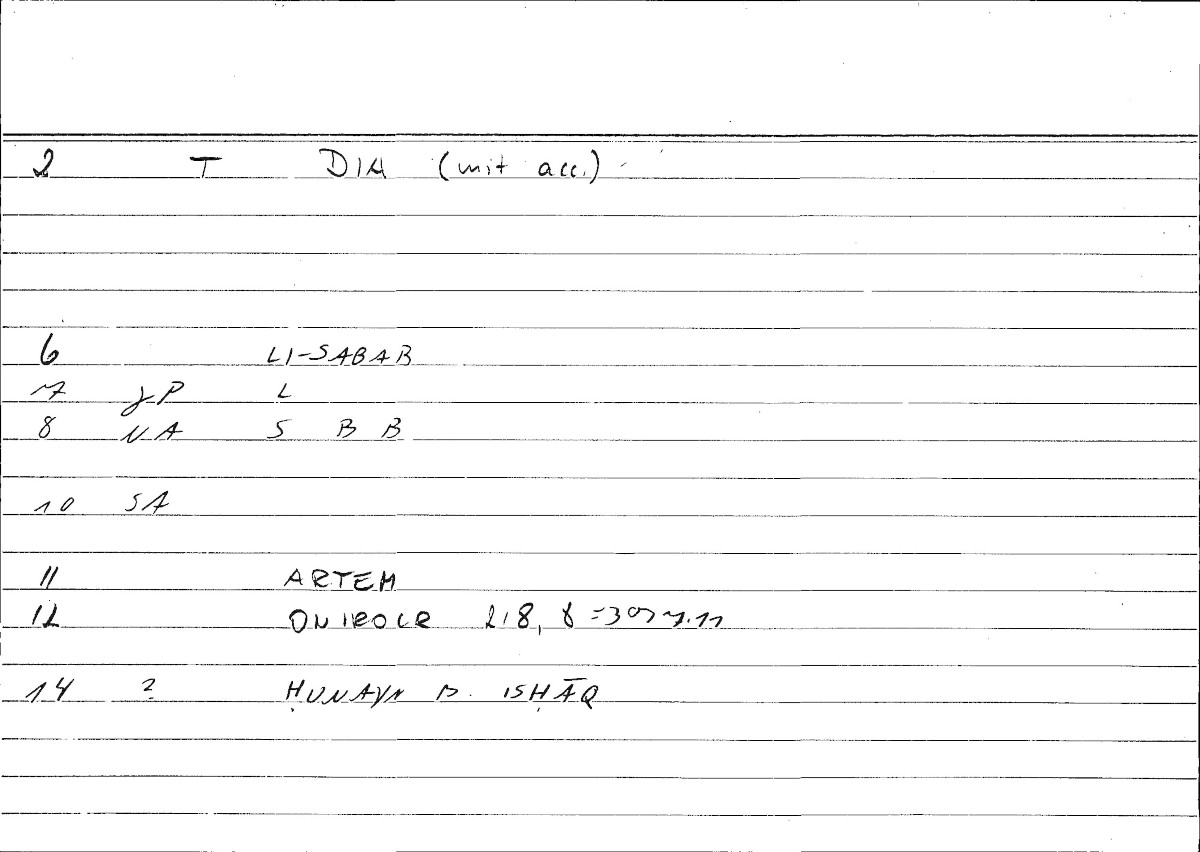 2 T DIA (mit acc.)
6 LI-SABAB
7 JP L
8 NA S B B
10 SA
11 ARTEM
12 ONIROCR 218, 8 =
14 ? ḤUNAYN B. ISḤĀQ